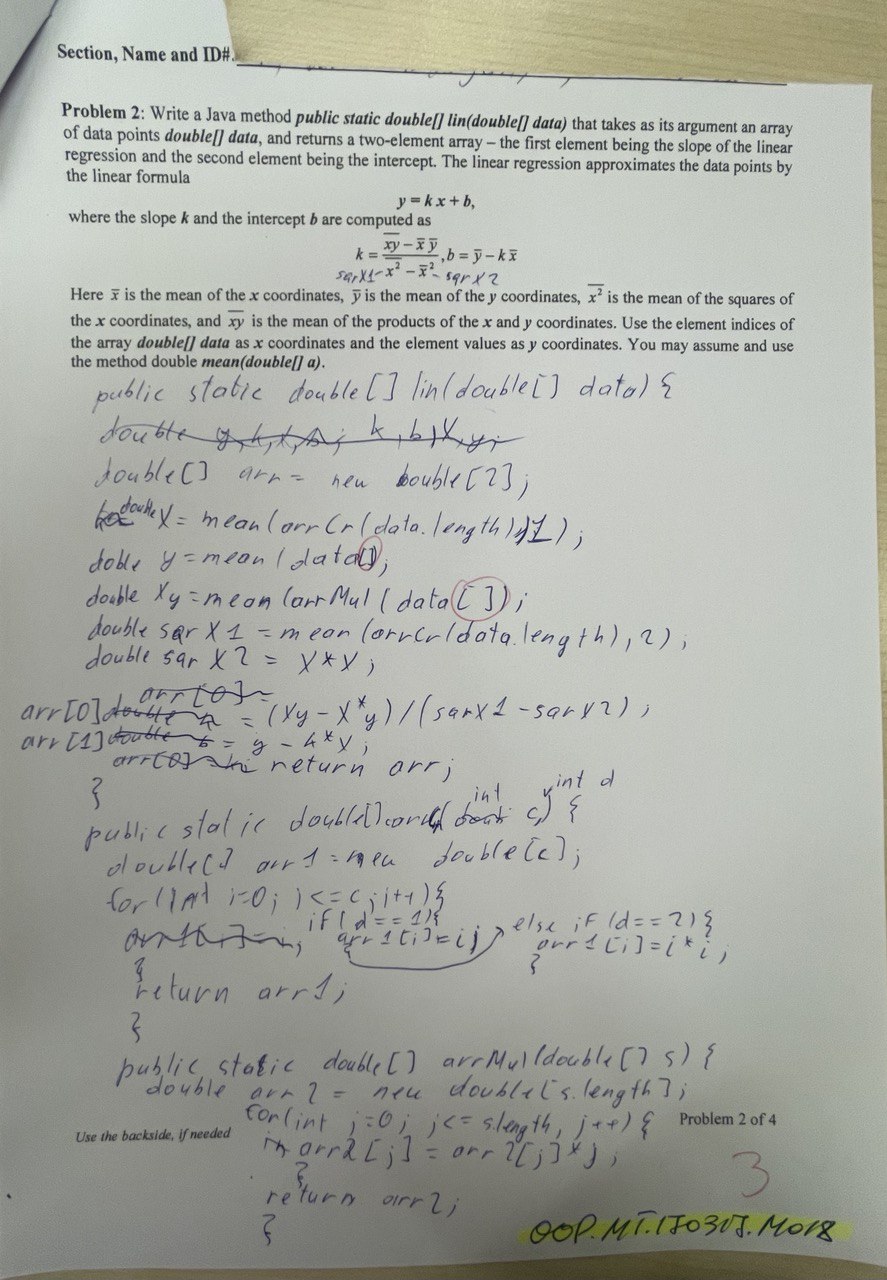 Section, Name and ID#
Problem 2: Write a Java method public static double[] lin(double[] data) that takes as its argument an array
of data points double[] data, and returns a two-element array – the first element being the slope of the linear
regression and the second element being the intercept. The linear regression approximates the data points by
the linear formula
y = k x + b,
where the slope k and the intercept b are computed as
k = (xy̅ – x̅ y̅) / (x²̅ – x̅²), b = y̅ – k x̅
sqrX1 – sqrX2
Here x̅ is the mean of the x coordinates, y̅ is the mean of the y coordinates, x²̅ is the mean of the squares of
the x coordinates, and xy̅ is the mean of the products of the x and y coordinates. Use the element indices of
the array double[] data as x coordinates and the element values as y coordinates. You may assume and use
the method double mean(double[] a).
public static double[] lin(double[] data) {
double k, b, x, y;
double[] arr = new double[2];
double X = mean(arrCr(data.length),1);
doble y = mean(data[]);
double Xy = mean(arrMul(data[]);
double sqrX1 = mean(arrCr(data.length),2);
double sqrX2 = X*X;
arr[0] =
arr[0] double k = (Xy - X*y)/(sqrX1 - sqrX2);
arr[1] double b = y - k*X;
return arr;
}
public static double[] arrCr(int c, int d) {
double[] arr1 = new double[c];
for(int i=0; i<=c; i++){
if(d==1){ else if(d==2){
arr1[i]=i; arr1[i]=i*i;
} }
}
return arr1;
}
public static double[] arrMul(double[] s) {
double arr2 = new double[s.length];
for(int j=0; j<= s.length, j++) {
Use the backside, if needed
Problem 2 of 4
arr2[j] = arr2[j]*j;
}
return arr2;
}
3
OOP.MT.170317.M018